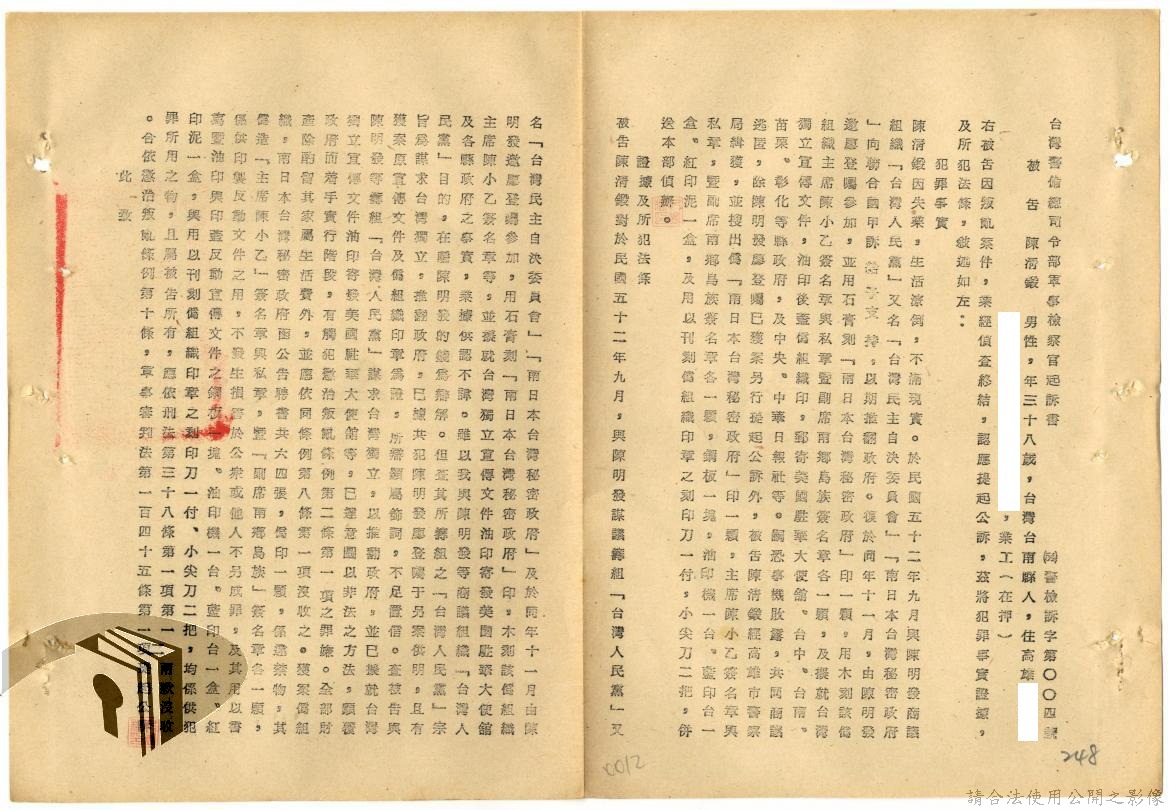 台灣警備總司令部軍事檢察官起訴書
㈣警檢訴字第〇〇四號
被告 陳清鍛 男性，年三十八歲，台灣台南縣人，住高雄
，業工（在押）
右被告因叛亂案件，業經偵查終結，認應提起公訴，茲將犯罪事實證據，
及所犯法條，敘述如左：
犯罪事實
陳清鍛因失業，生活潦倒，不滿現實。於民國五十二年九月與陳明發商議
組織「台灣人民黨」又名「台灣民主自決委員會」「南日本台灣秘密政府
」向聯合國申訴 支持，以期推翻政府。復於同年十一月，由陳明發
邀廖登矚參加，並用石膏刻「南日本台灣秘密政府」印一顆，用木刻該偽
組織主席陳小乙簽名章與私章暨副席南鄉島族簽名章各一顆，及擬就台灣
獨立宣傳文件，油印後蓋偽組織印，郵寄美國駐華大使館。台中。台南。
苗栗。彰化等縣政府，及中央。中華日報社等。嗣恐事機敗露，共同商議
逃匿，除陳明發廖登矚已獲案另行提起公訴外，被告陳清鍛經高雄市警察
局緝獲，並搜出偽「南日本台灣秘密政府」印一顆，主席陳小乙簽名章與
私章，暨副席南鄉島族簽名章各一顆，鋼板一塊，油印機一台。藍印台一
盒。紅印泥一盒，及用以刊刻偽組織印章之刻印刀一付，小尖刀二把，併
送本部偵辦。
證據及所犯法條
被告陳清鍛對於民國五十二年九月，與陳明發謀議籌組「台灣人民黨」又
名「台灣民主自決委員會」「南日本台灣秘密政府」及於同年十一月由陳
明發邀廖登矚參加，用石膏刻「南日本台灣秘密政府」印，木刻該偽組織
主席陳小乙簽名章等，並擬就台灣獨立宣傳文件油印寄發美國駐華大使館
及各縣政府之事實，業據供認不諱。雖以我與陳明發等商議組織「台灣人
民黨」目的，在騙陳明發的錢為辯解。但查其所籌組之「台灣人民黨」宗
旨為謀求台灣獨立，推翻政府，已據共犯陳明發廖登矚于另案供明，且有
獲案原宣傳文件及偽組織印章為證，所辯顯屬飾詞，不足置信。查被告與
陳明發等籌組「台灣人民黨」謀求台灣獨立，以推翻政府，並已擬就台灣
獨立宣傳文件油印寄發美國駐華大使館等，已達意圖以非法之方法，顛覆
政府而着手實行階段，有觸犯懲治叛亂條例第二條第一項之罪嫌。全部財
產除酌留其家屬生活費外，並應依同條例第八條第一項沒收之。獲案偽組
織，南日本台灣秘密政府函公告聘書共六四張，偽印一顆，係違禁物，其
偽造「主席陳小乙」簽名章與私章，暨「副席南鄉島族」簽名章各一顆，
係供印製反動文件之用，不發生損害於公衆或他人不另成罪，及其用以書
寫暨油印與印蓋反動宣傳文件之鋼板一塊。油印機一台。藍印台一盒。紅
印泥一盒，與用以刊刻偽組織印章之刻印刀一付、小尖刀二把，均係供犯
罪所用之物，且屬被告所有，應依刑法第三十八條第一項第一二兩款沒收
。合依懲治叛亂條例第十條，軍事審判法第一百四十五條第一項提起公訴
此致
0012
248
請合法使用公開之影像